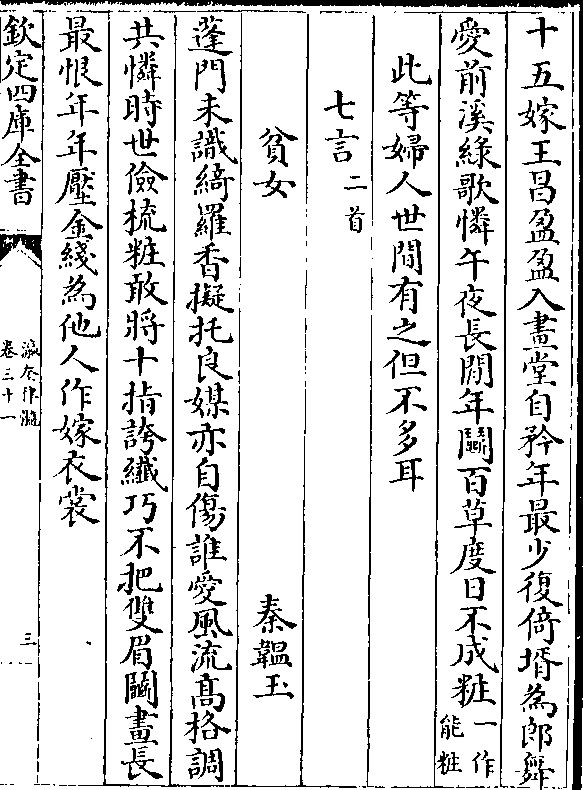 十五嫁王昌盈盈入畫堂自矜年最少復倚壻為郎舞
愛前溪緑歌憐午夜長閒年鬭百草度日不成粧一作能粧
此等婦人世間有之但不多耳
七言二首
貧女 秦韞玉
蓬門未識綺羅香擬托良媒亦自傷誰愛風流髙格調
共憐時世儉梳粧敢將十指誇纖巧不把雙眉鬭畫長
最恨年年壓金綫為他人作嫁衣裳
欽定四庫全書
瀛奎律髓
卷三十一
三